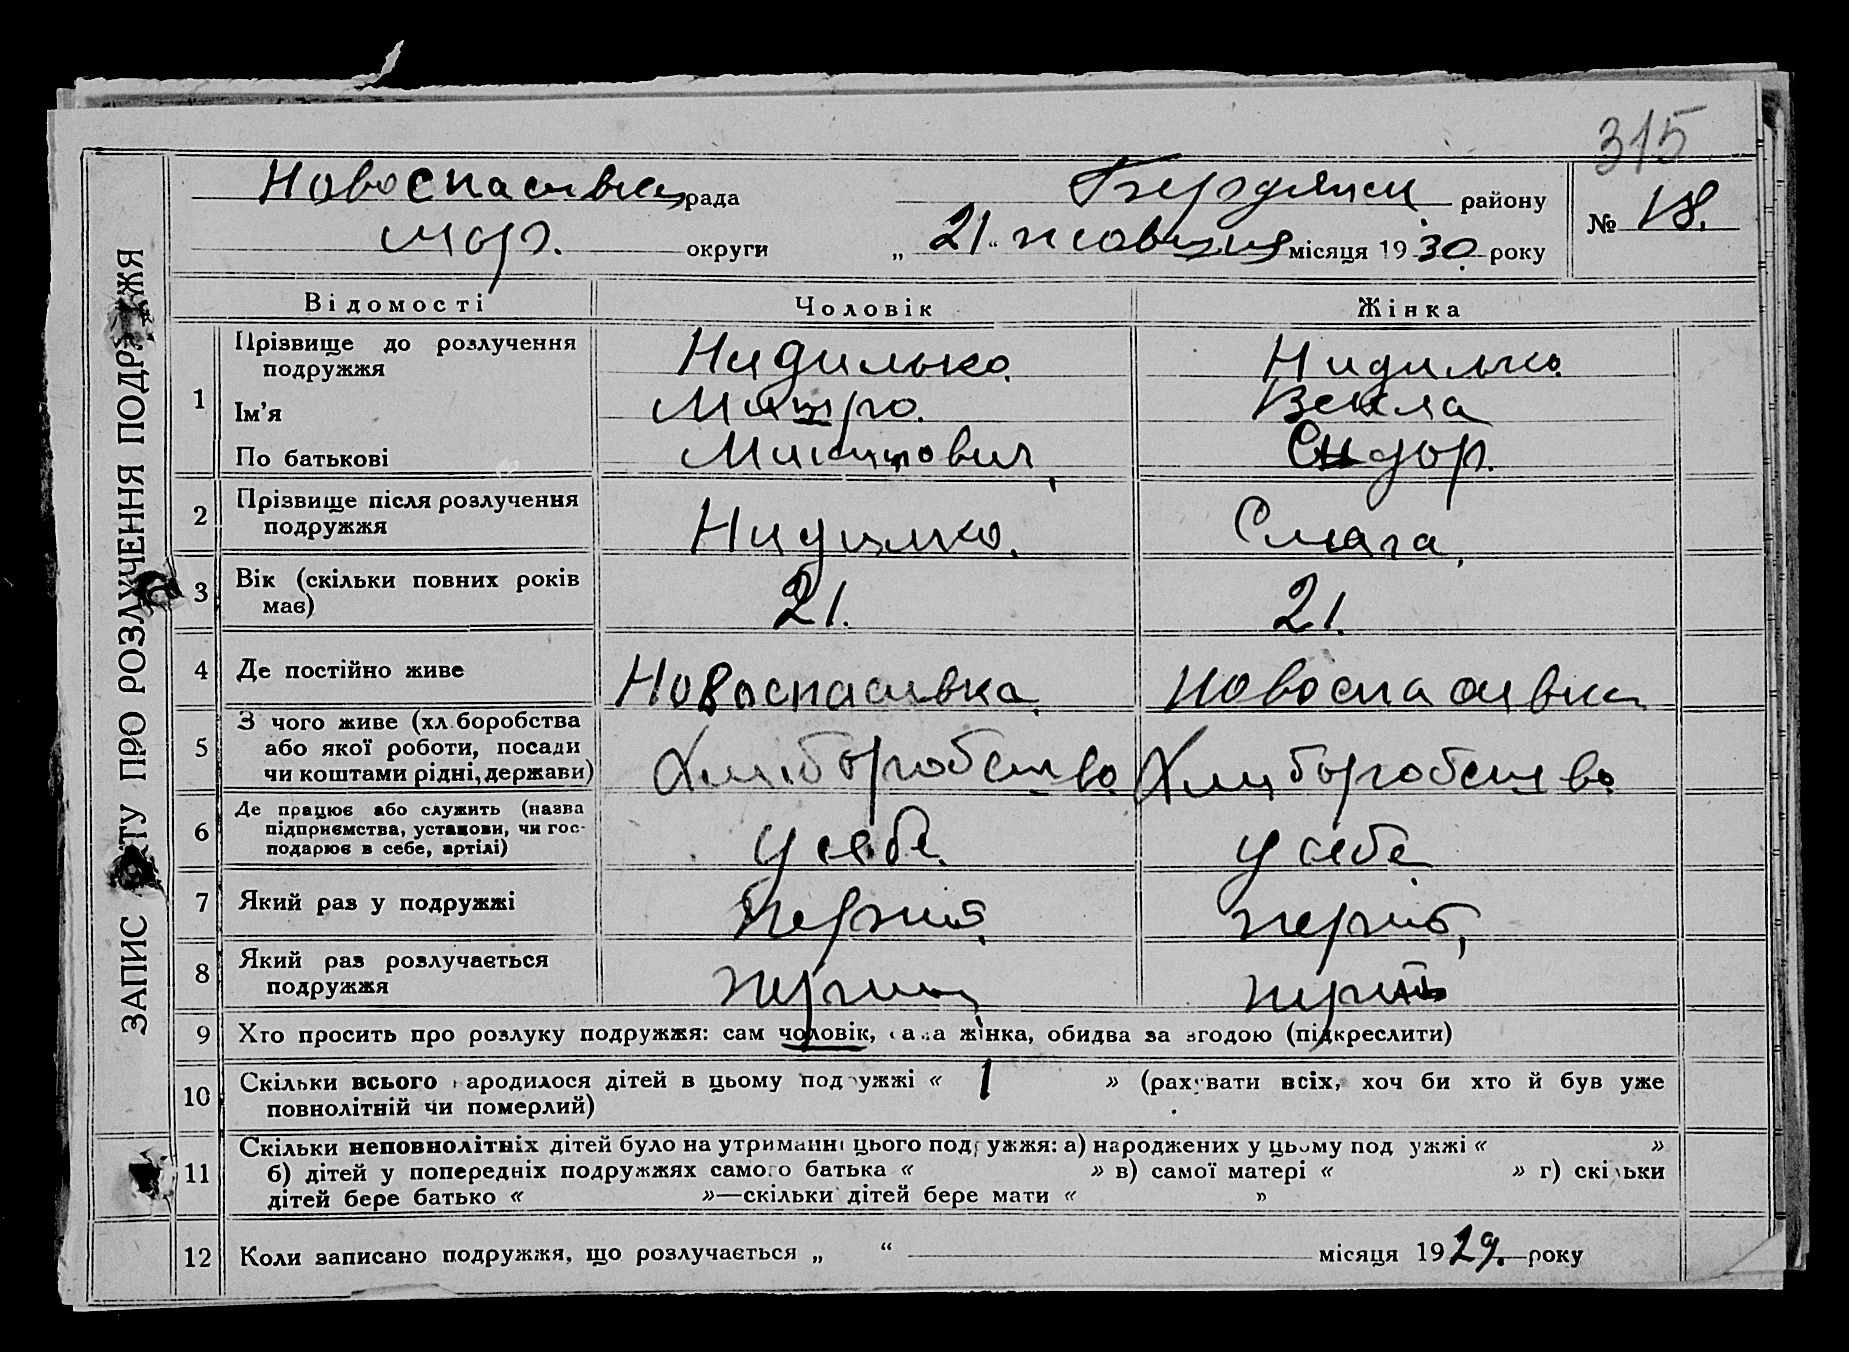 315
ЗАПИС АКТУ ПРО РОЗЛУЧЕННЯ ПОДРУЖЖЯ
Новоспасівка рада Бердянськ району № 18.
округи „ 21 “ жовтня місяця 1930 року
Відомості Чоловік Жінка
1 Прізвище до розлучення подружжя Нидилько. Нидилько.
Ім’я Митро. Векла
По батькові Сидор.
2 Прізвище після розлучення подружжя Нидилко. Смага
3 Вік (скільки повних років має) 21. 21.
4 Де постійно живе Новоспасивка Новоспасивка
5 З чого живе (хліборобства або якої роботи, посади чи коштами рідні, держави) Хлиборобство Хлиборобство
6 Де працює або служить (назва підприємства, установи, чи господарює в себе, артілі) у себе. у себе
7 Який раз у подружжі перший. перший,
8 Який раз розлучається подружжя перший перший
9 Хто просить про розлуку подружжя: сам чоловік, сама жінка, обидва за згодою (підкреслити)
10 Скільки всього народилося дітей в цьому подружжі « 1 » (рахувати всіх, хоч би хто й був уже
повнолітній чи померлий)
11 Скільки неповнолітніх дітей було на утриманні цього подружжя: а) народжених у цьому подружжі « »
б) дітей у попередніх подружжях самого батька « » в) самої матері « » г) скільки
дітей бере батько « »—скільки дітей бере мати « »
12 Коли записано подружжя, що розлучається „ “ місяця 1929. року